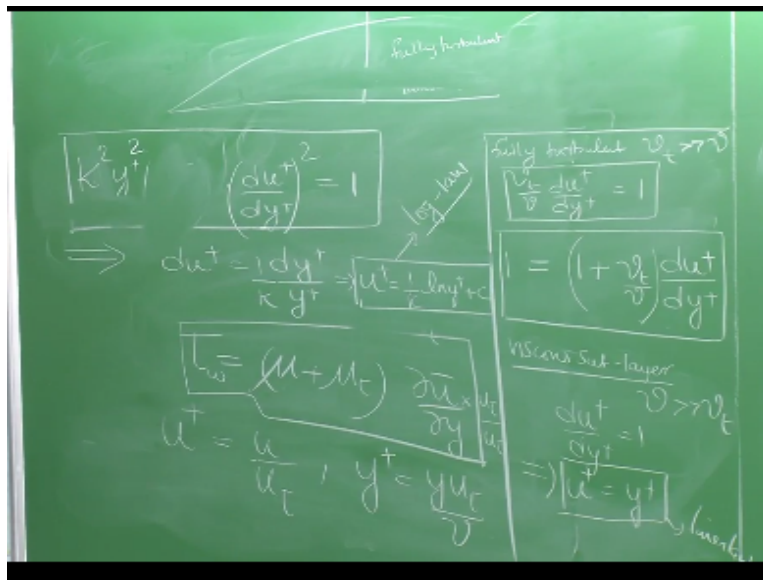 fully turbulent
K² y⁺² (du⁺/dy⁺)² = 1
⇒ du⁺ = 1/κ dy⁺/y⁺ ⇒ u⁺ = 1/κ ln y⁺ + C
log-law
τ_w = (μ + μ_t) ∂ū/∂y × u_τ/u_τ
u⁺ = u/u_τ , y⁺ = y u_τ/ν
fully turbulent ν_t >> ν
ν_t/ν du⁺/dy⁺ = 1
1 = (1 + ν_t/ν) du⁺/dy⁺
viscous sub-layer
ν >> ν_t
du⁺/dy⁺ = 1
⇒ u⁺ = y⁺